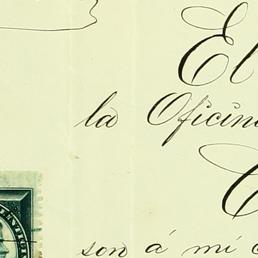 El
la Oficin
son á mi c